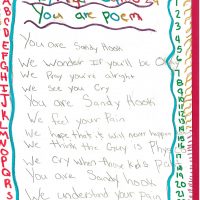 You are poem
You are Sandy Hook
We Wonder If you'll be
We Pray you're alright
We see you Cry
You are Sandy Hook
We feel your Pain
We hope that it will never happen
We think the Guy is
We Cry when those kids
You are Sandy Hook
We understand your Pain
A
B
C
D
E
F
G
H
I
J
K
L
M
N
O
P
Q
R
S
1
2
3
4
5
6
7
8
9
10
11
12
13
14
15
16
17
18
19
20
21